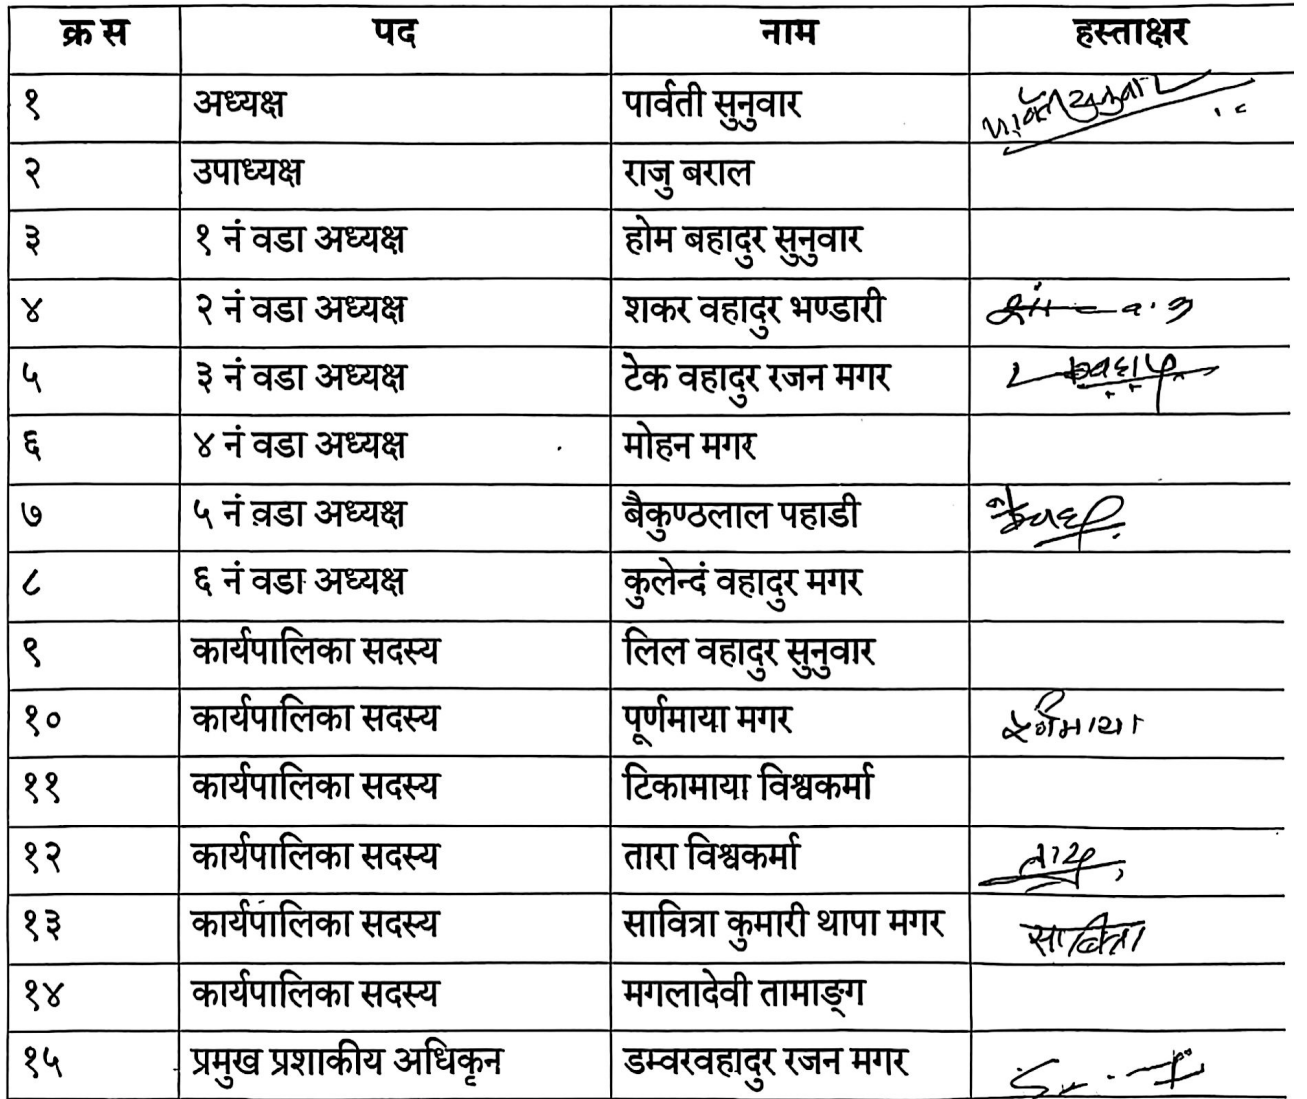 क्र स पद नाम हस्ताक्षर
१ अध्यक्ष पार्वती सुनुवार पार्वती सुनुवार
२ उपाध्यक्ष राजु बराल
३ १ नं वडा अध्यक्ष होम बहादुर सुनुवार
४ २ नं वडा अध्यक्ष शकर वहादुर भण्डारी
५ ३ नं वडा अध्यक्ष टेक वहादुर रजन मगर
६ ४ नं वडा अध्यक्ष मोहन मगर
७ ५ नं वडा अध्यक्ष बैकुण्ठलाल पहाडी
८ ६ नं वडा अध्यक्ष कुलेन्दं वहादुर मगर
९ कार्यपालिका सदस्य लिल वहादुर सुनुवार
१० कार्यपालिका सदस्य पूर्णमाया मगर पूर्णमाया
११ कार्यपालिका सदस्य टिकामाया विश्वकर्मा
१२ कार्यपालिका सदस्य तारा विश्वकर्मा
१३ कार्यपालिका सदस्य सावित्रा कुमारी थापा मगर सावित्रा
१४ कार्यपालिका सदस्य मगलादेवी तामाङ्ग
१५ प्रमुख प्रशाकीय अधिकृन डम्वरवहादुर रजन मगर